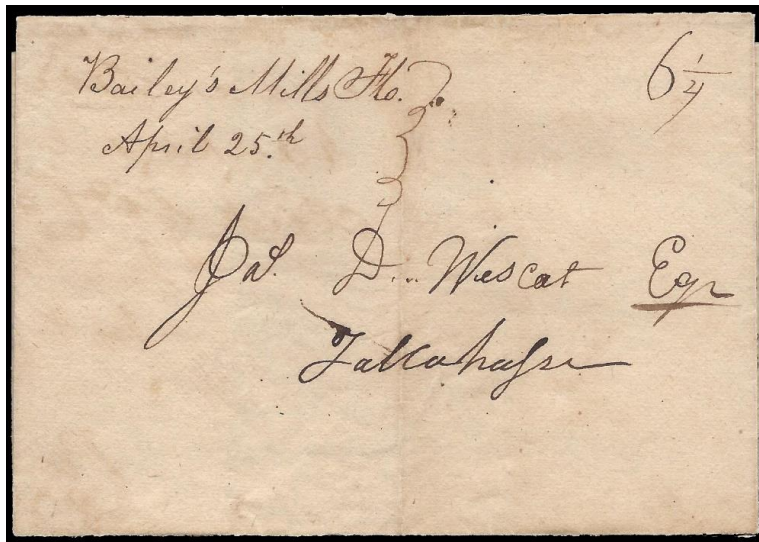 Bailey's Mills Flo. 6 1/4
April 25.th
Jas. D. Wescot Eqr
Tallahassee